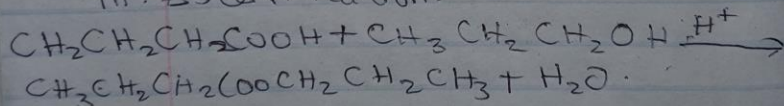 CH₂CH₂CH₂COOH + CH₃CH₂CH₂OH H⁺ →
CH₃CH₂CH₂COOCH₂CH₂CH₃ + H₂O.